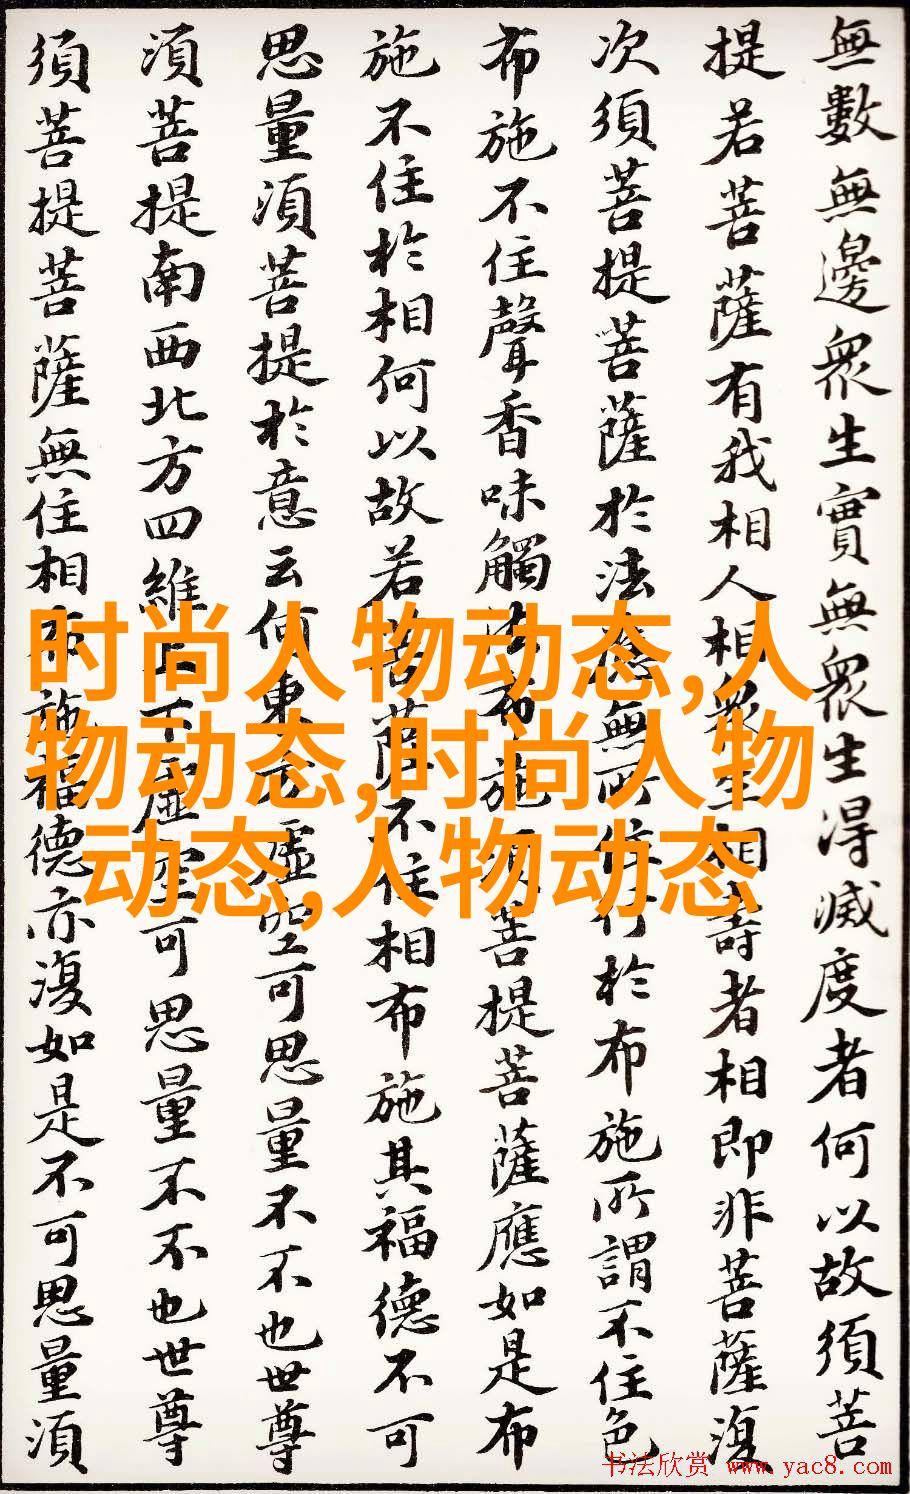 無數無邊眾生實無眾生得滅度者何以故須菩
提若菩薩有我相人相眾生相壽者相即非菩薩復
次須菩提菩薩於法應無所住行於布施所謂不住色
布施不住聲香味觸法布施須菩提菩薩應如是布
施不住於相何以故若菩薩不住相布施其福德不可
思量須菩提於意云何東方虛空可思量不不也世尊
須菩提南西北方四維上下虛空可思量不不也世尊
須菩提菩薩無住相布施福德亦復如是不可思量須
时尚人物动态,人
物动态,时尚人物
动态,人物动态
书法欣赏 www.yac8.com